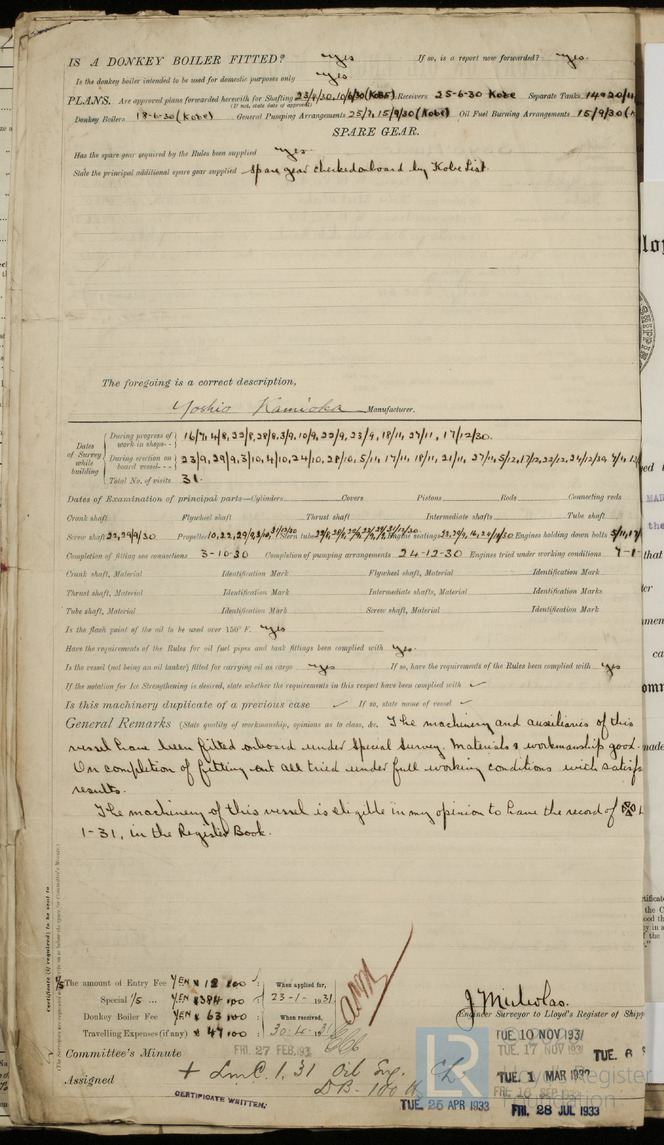 IS A DONKEY BOILER FITTED? yes If so, is a report now forwarded? yes.
Is the donkey boiler intended to be used for domestic purposes only yes.
PLANS. Are approved plans forwarded herewith for Shafting 23/4/30, 10/6/30 (Kobe) Receivers 25-6-30 Kobe Separate Tanks
(If not, state date of approval)
Donkey Boilers 18-6-30 (Kobe) General Pumping Arrangements 25/7, 15/9/30 (Kobe) Oil Fuel Burning Arrangements 15/9/30
SPARE GEAR.
Has the spare gear required by the Rules been supplied yes.
State the principal additional spare gear supplied Spare gear checked onboard by Kobe List
The foregoing is a correct description,
Yoshio Kamioka Manufacturer.
Dates of Survey while building
During progress of work in shops-- 16/7, 4/8, 22/8, 28/8, 3/9, 10/9, 22/9, 23/9, 18/11, 27/11, 17/12/30.
During erection on board vessel--- 23/9, 29/9, 3/10, 4/10, 24/10, 28/10, 5/11, 17/11, 18/11, 21/11, 27/11, 5/12, 17/12, 22/12, 24/12/30,
Total No. of visits 31.
Dates of Examination of principal parts—Cylinders Covers Pistons Rods Connecting rods
Crank shaft Flywheel shaft Thrust shaft Intermediate shafts Tube shaft
Screw shaft 22, 29/9/30 Propeller Stern tube Engine seatings Engines holding down bolts
Completion of fitting sea connections 3-10-30 Completion of pumping arrangements 24-12-30 Engines tried under working conditions
Crank shaft, Material Identification Mark Flywheel shaft, Material Identification Mark
Thrust shaft, Material Identification Mark Intermediate shafts, Material Identification Marks
Tube shaft, Material Identification Mark Screw shaft, Material Identification Mark
Is the flash point of the oil to be used over 150° F. yes
Have the requirements of the Rules for oil fuel pipes and tank fittings been complied with yes.
Is the vessel (not being an oil tanker) fitted for carrying oil as cargo yes If so, have the requirements of the Rules been complied with yes
If the notation for Ice Strengthening is desired, state whether the requirements in this respect have been complied with ✓
Is this machinery duplicate of a previous case ✓ If so, state name of vessel ✓
General Remarks (State quality of workmanship, opinions as to class, &c. The machinery and auxiliaries of this
vessel have been fitted onboard under Special Survey. Materials & workmanship good.
On completion of fitting out all tried under full working conditions with
results.
The machinery of this vessel is eligible in my opinion to have the record of
1-31, in the Register Book.
Certificate (if required) to be sent to
The amount of Entry Fee YEN 12.00 When applied for,
Special 1/5 ... YEN 384.00 23-1-1931.
Donkey Boiler Fee YEN 63.00 When received,
Travelling Expenses (if any) 47.00 30-4-1931
J Nicholas.
Engineer Surveyor to Lloyd's Register of
Committee's Minute FRI. 27 FEB. 193
TUE. 10 NOV 1931
TUE. 17 NOV 1931
TUE. 1 MAR 1932
Assigned + LMC. 1.31 Oil Eng. CL.
DB- 100 lb
CERTIFICATE WRITTEN.
TUE. 25 APR 1933
FRI. 28 JUL 1933
LR
Lloyd's Register
Foundation